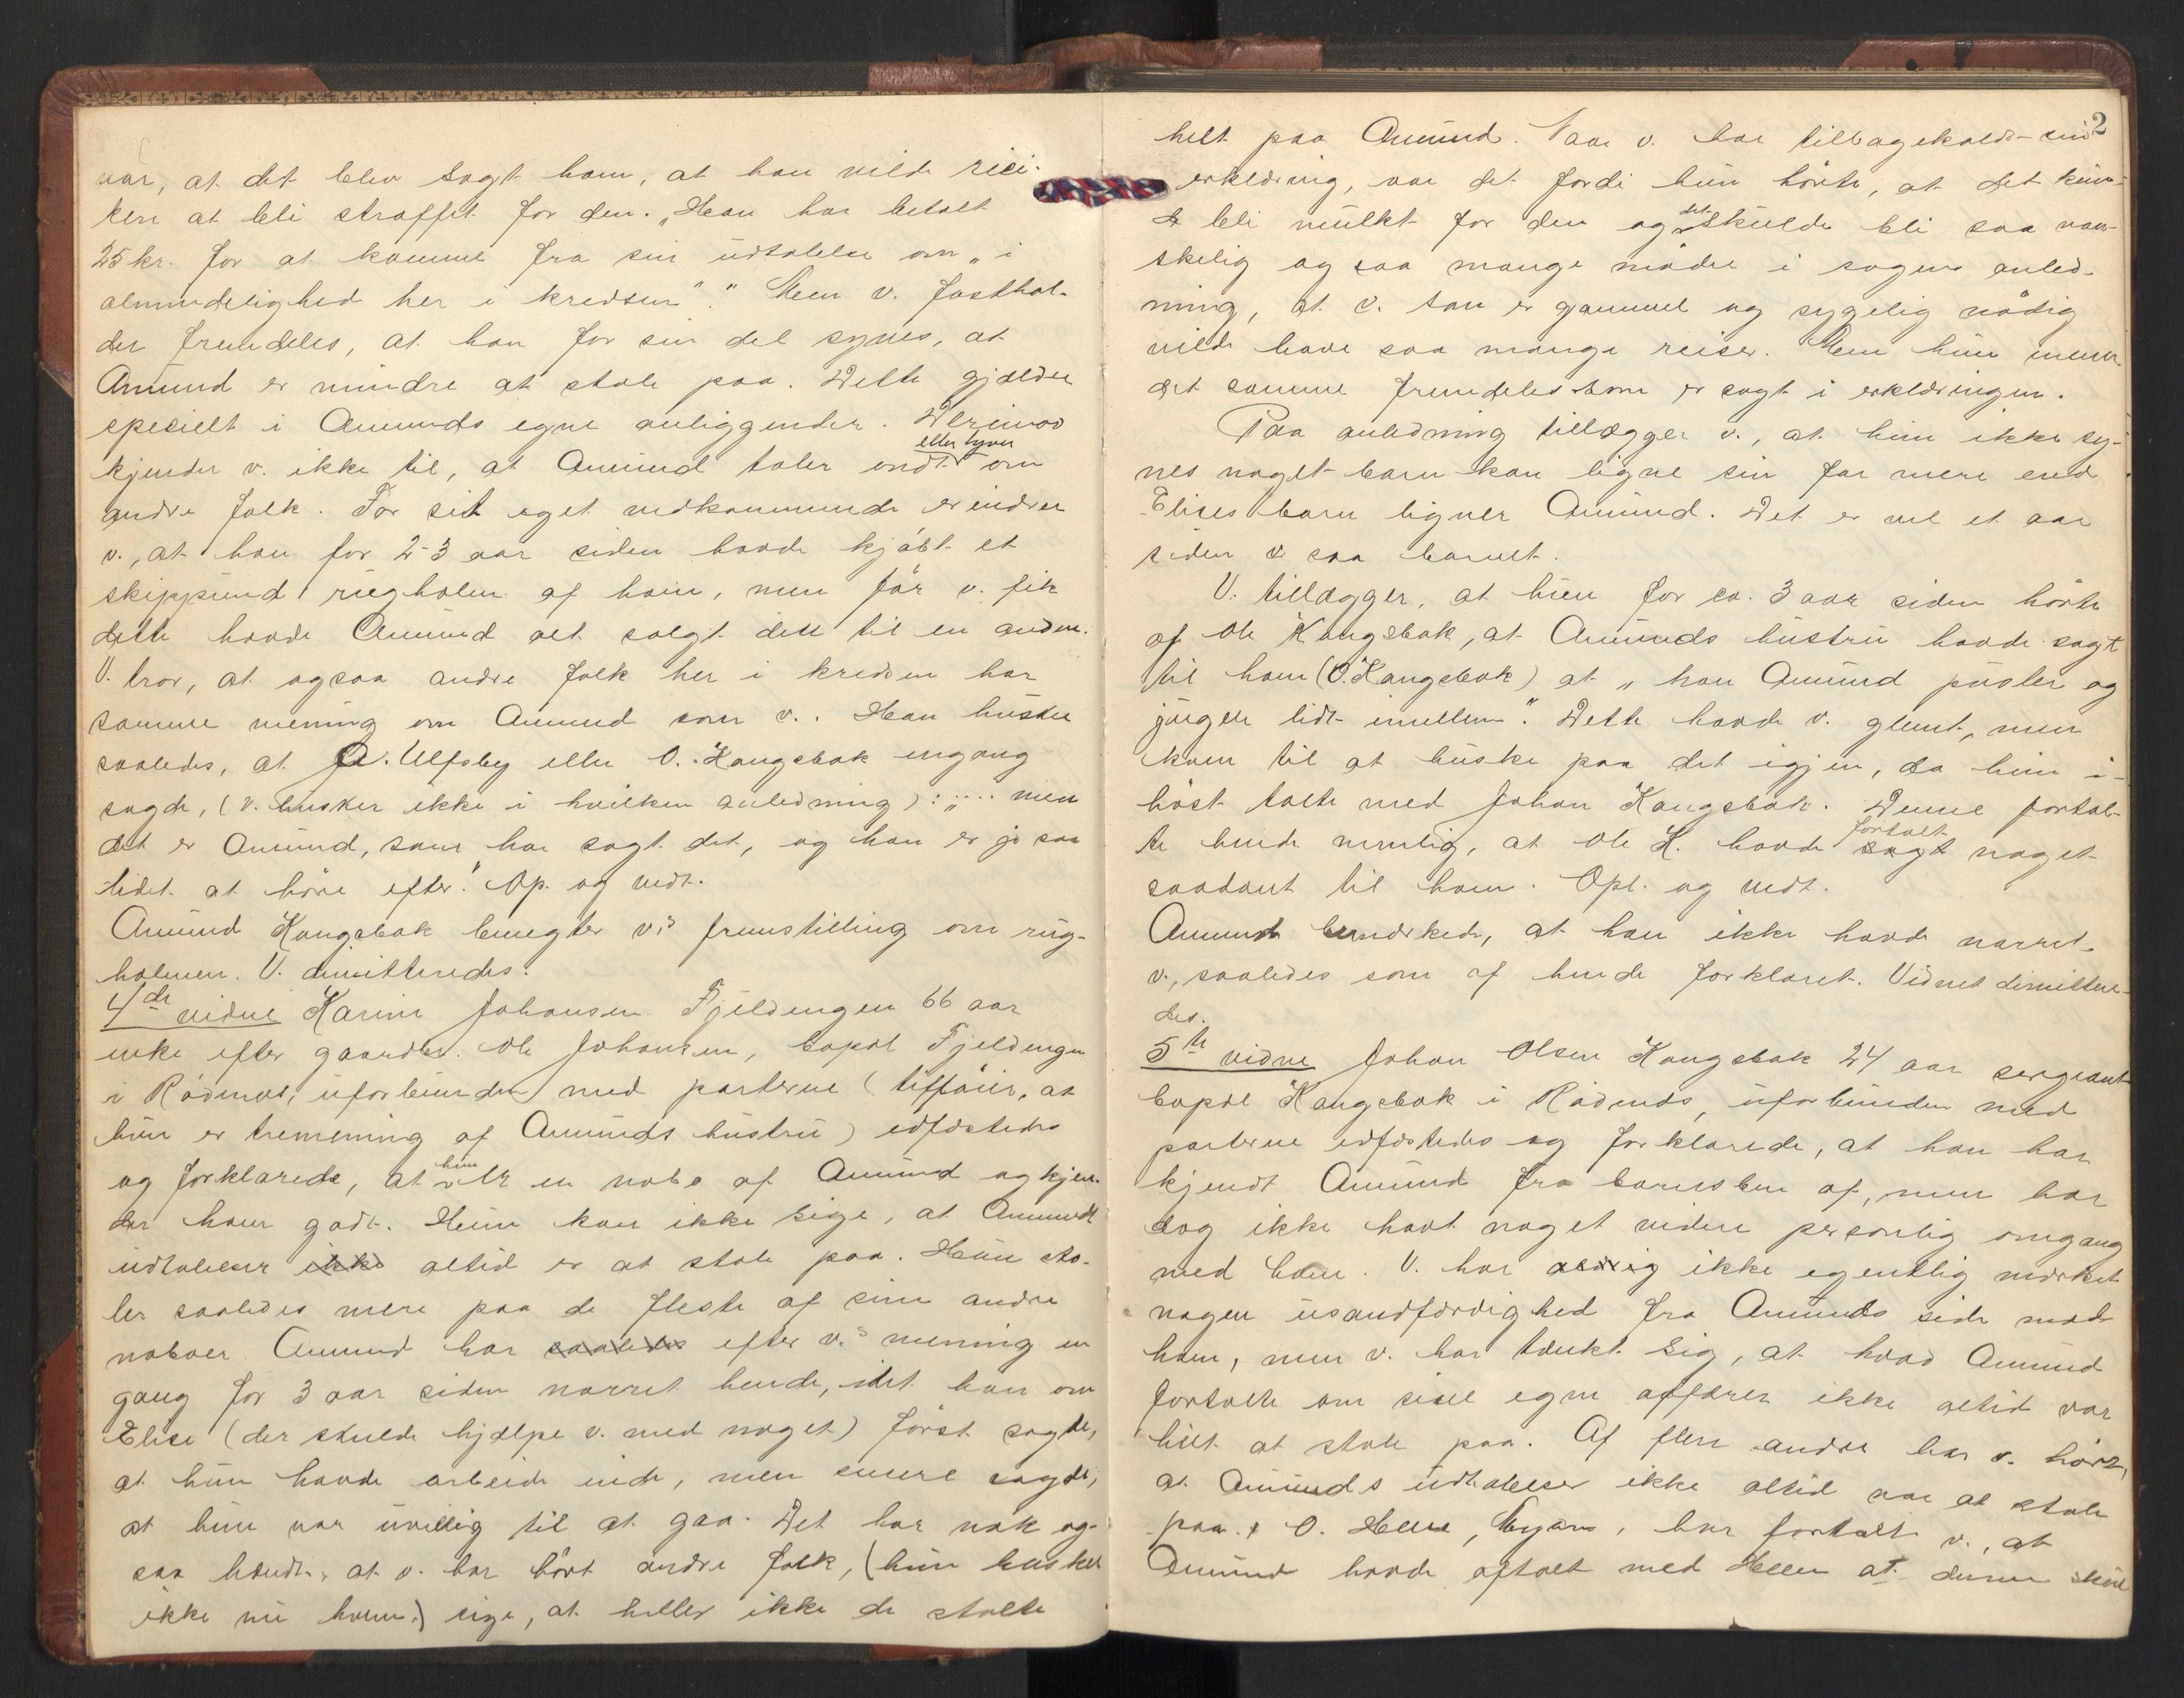 var, at det blev sagt ham, at han vilde rici-
kere at bli straffet for den. „Han har betalt
25 kr. for at komme fra sin udtalelse om „i
almindelighed her i kredsen“.“ Men v. fasthol-
der fremdeles, at han for sin del synes, at
Amund er mindre at stole paa. Dette gjælder
specielt i Amunds egne anliggender. Derimod
eller lyver
kjender v. ikke til, at Amund taler ondt om
andre folk. For sit eget vedkommende erindrer
v., at han for 2-3 aar siden havde kjøbt et
skippund rughalm af ham, men før v. fik
dette havde Amund alt solgt dette til en anden.
V. tror, at ogsaa andre folk her i kredsen har
samme mening om Amund som v.. Han husker
saaledes, at A. Ulfsby eller O. Kangsbak engang
sagde, (v. husker ikke i hvilken anledning): „.... men
det er Amund, som har sagt det, og han er jo saa
lidet at høre efter.“ Op. og vedt.
Amund Kangsbak benegter v.s fremstilling om rug-
halmen. V. dimitteredes.
4de vidne Karine Johansen Fjeldengen 66 aar
enke efter gaardbr. Ole Johansen, bopæl Fjeldengen
i Rødenæs, uforbunden med parterne (tilføier, at
hun er tremenning af Amunds hustru) edfæstedes
hun
og forklarede, at er en nabo af Amund og kjen-
der ham godt. Hun kan ikke sige, at Amunds
udtalelser ikke altid er at stole paa. Hun sto-
ler saaledes mere paa de fleste af sine andre
naboer. Amund har saaledes efter v.s mening en
gang for 3 aar siden narret hende, idet han om
Elise (der skulde hjælpe v. med noget) først sagde,
at hun havde arbeide inde, men senere sagde,
at hun var uvillig til at gaa. Det har nok og-
saa hændt, at v. har hørt andre folk, (hun husker
ikke nu hvem) sige, at heller ikke de stolte
2
helt paa Amund. Naar v. har tilbagekaldt sin
erklæring, var det fordi hun hørte, at det kun-
de bli mulkt for den og det skulde bli saa van-
skelig og saa mange møder i sagens anled-
ning, at v. som er gammel og sygelig nødig
vilde have saa mange reiser. Men hun mener
det samme fremdeles som er sagt i erklæringen.
Paa anledning tillægger v., at hun ikke sy-
nes noget barn kan ligne sin far mere end
Elises barn ligner Amund. Det er vel et aar
siden v saa barnet.
V. tillægger, at hun for ca. 3 aar siden hørte
af Ole Kangsbak, at Amunds hustru havde sagt
til ham (O. Kangsbak) at „han Amund pusler og
juger lidt imellem“. Dette havde v. glemt, men
kom til at huske paa det igjen, da hun i
høst talte med Johan Kangsbak. Denne fortal-
fortalt
te hende nemlig, at Ole K. havde sagt noget
saadant til ham. Opl. og vedt.
Amund bemærkede, at han ikke havde narret
v., saaledes som af hende forklaret. Vidnet dimittere-
des.
5te vidne Johan Olsen Kangsbak 24 aar sergeant
bopæl Kangsbak i Rødenæs, uforbunden med
parterne edfæstedes og forklarede, at han har
kjendt Amund fra barnsben af, men har
dog ikke havt noget videre personlig omgang
med ham. V. har aldrig ikke egentlig mærket
nogen usandfærdighed fra Amunds side mod
ham, men v. har tænkt sig, at hvad Amund
fortalte om sine egne affærer ikke altid var
helt at stole paa. Af flere andre har v. hørt,
at Amunds udtalelser ikke altid var at stole
paa. O. Heller, har fortalt v., at
Amund havde aftalt med Heller at denne skul